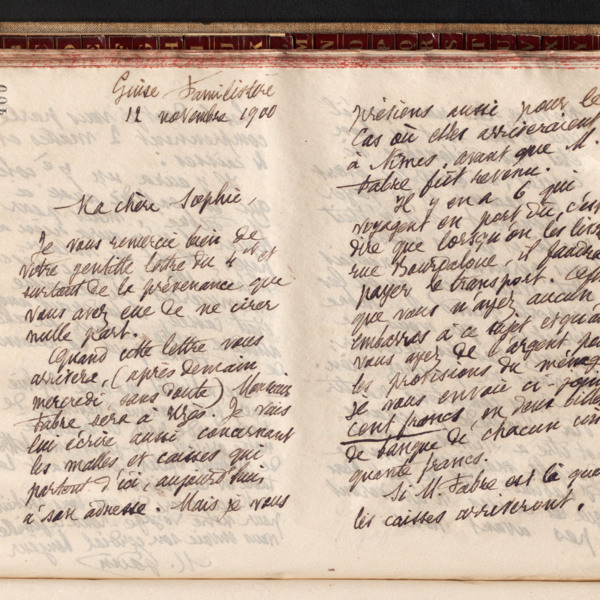 400
Guise Familistère
12 novembre 1900
Ma chère Sophie,
Je vous remercie bien de
votre gentille lettre du 4 ct et
surtout de la prévenance que
vous avez eue de ne cirer
nulle part.
Quand cette lettre vous
arrivera, (après demain
mercredi sans doute) Monsieur
Fabre sera à Uzès. Je vais
lui écrire aussi concernant
les malles et caisses qui
partent d'ici, aujourd'hui,
à son adresse. Mais je vous
préviens aussi pour le
cas où elles arriveraient
à Nîmes, avant que M.
Fabre fût revenu.
Il y en a 6 qui
voyagent en port dû, c'est
dire que lorsqu'on les livr
rue Bourdaloue, il faudra
payer le transport.
que vous n'ayez aucun
embarras à ce sujet et qu
vous ayez de l'argent po
les provisions du ménag
je vous envoie ci-
cent francs, en deux bille
de banque de chacun cin
quante francs.
Si M. Fabre est là que
les caisses arriveront.
M. Godin